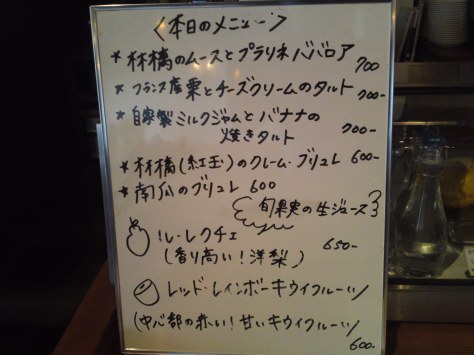 <本日のメニュー>
* 林檎のムースとプラリネババロア 700
* フランス産栗とチーズクリームのタルト 700-
* 自家製ミルクジャムとバナナの
焼きタルト 700-
* 林檎(紅玉)のクレーム・ブリュレ 600-
* 南瓜のブリュレ 600
旬果実の生ジュース
ル・レクチェ
(香り高い!洋梨) 650-
レッド・レインボーキウイフルーツ
(中心部の赤い!甘いキウイフルーツ)
600-